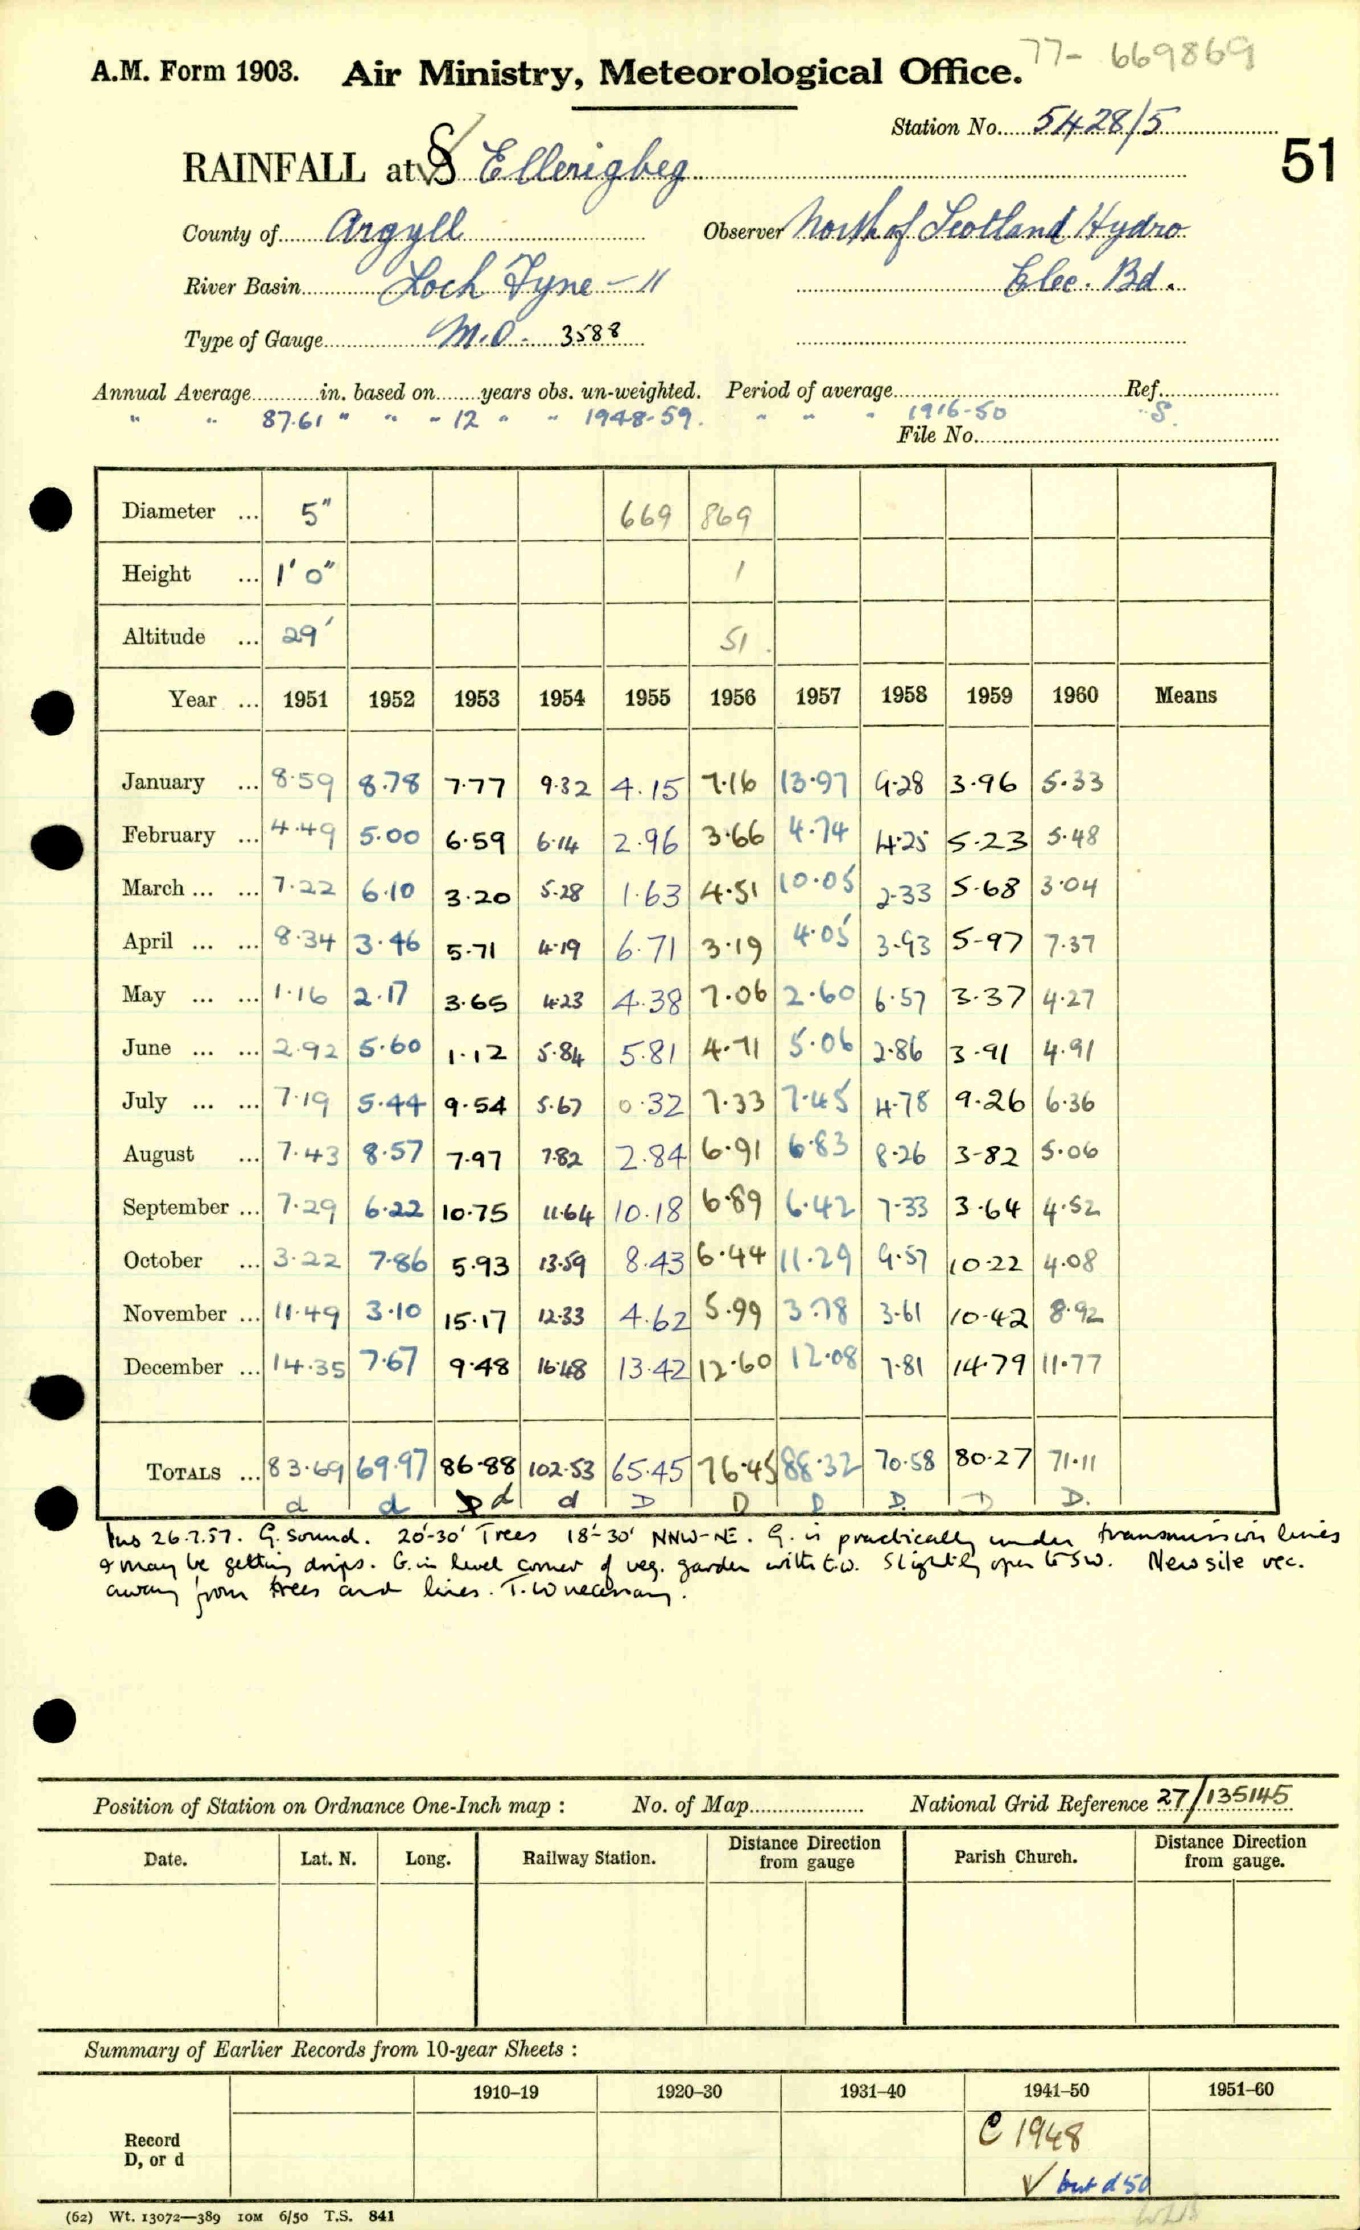 77- 669869
A.M. Form 1903. Air Ministry, Meteorological Office.
Station No. 5428/5
51
RAINFALL at Ellerigbeg
County of Argyll Observer North of Scotland Hydro
River Basin Loch Fyne - 11 Elec. Bd.
Type of Gauge M.O. 3588
Annual Average in. based on years obs. un-weighted. Period of average Ref.
" " 87.61 " " " 12 " " 1948-59. " " " 1916-50 " S.
File No.
Diameter ... 5" 669 869
Height ... 1' 0" 1
Altitude ... 29' 51
Year ... 1951 1952 1953 1954 1955 1956 1957 1958 1959 1960 Means
January ... 8.59 8.78 7.77 9.32 4.15 7.16 13.97 9.28 3.96 5.33
February ... 4.49 5.00 6.59 6.14 2.96 3.66 4.74 4.25 5.23 5.48
March ... ... 7.22 6.10 3.20 5.28 1.63 4.51 10.05 2.33 5.68 3.04
April ... ... 8.34 3.46 5.71 4.19 6.71 3.19 4.05 3.93 5.97 7.37
May ... ... 1.16 2.17 3.65 4.23 4.38 7.06 2.60 6.57 3.37 4.27
June ... ... 2.92 5.60 1.12 5.84 5.81 4.71 5.06 2.86 3.91 4.91
July ... ... 7.19 5.44 9.54 5.67 0.32 7.33 7.45 4.78 9.26 6.36
August ... 7.43 8.57 7.97 7.82 2.84 6.91 6.83 8.26 3.82 5.06
September ... 7.29 6.22 10.75 11.64 10.18 6.89 6.42 7.33 3.64 4.52
October ... 3.22 7.86 5.93 13.59 8.43 6.44 11.29 9.57 10.22 4.08
November ... 11.49 3.10 15.17 12.33 4.62 5.99 3.78 3.61 10.42 8.92
December ... 14.35 7.67 9.48 16.48 13.42 12.60 12.08 7.81 14.79 11.77
TOTALS ... 83.69 69.97 86.88 102.53 65.45 76.45 88.32 70.58 80.27 71.11
d d d d D D D D. D D.
Ins 26.7.57. G. sound. 20'-30' Trees 18'-30' NNW-NE. G. is practically under transmission lines
& may be getting drips. G. in level corner of veg. garden with t.w. Slightly open to SW. New site rec.
away from trees and lines. T.W necessary.
Position of Station on Ordnance One-Inch map : No. of Map National Grid Reference 27/135145
Date. Lat. N. Long. Railway Station. Distance Direction from gauge Parish Church. Distance Direction from gauge.
Summary of Earlier Records from 10-year Sheets :
1910-19 1920-30 1931-40 1941-50 1951-60
Record
D, or d
C 1948
✓ but d 50
(62) Wt. 13072—389 10M 6/50 T.S. 841